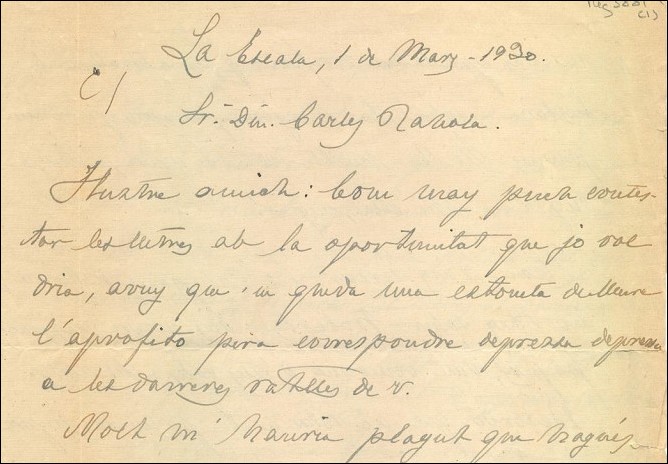 Reg 3001
(1)
La Escala, 1 de Mars - 1930.
c/
Sr. Dn. Carles Rahola.
Ilustre amich: Com may puch contes-
tar les lletres ab la oportunitat que jo vol
dria, avuy que 'm queda una estoneta de lleure
l'aprofito pera correspondre depressa depressa
a les darreres ratlles de v.
Molt m' hauria plagut que hagués